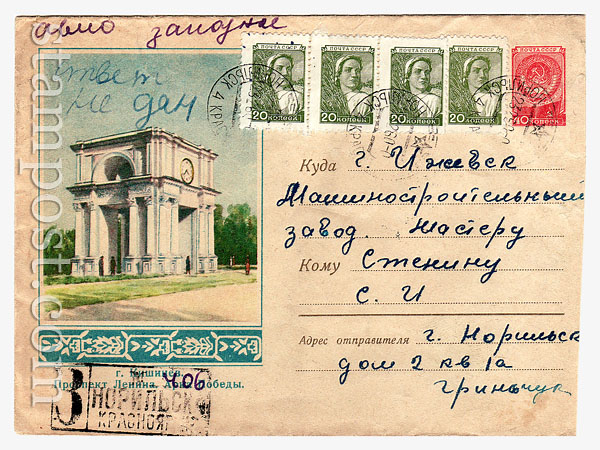 авио заказное
ответ
не дан
ПОЧТА СССР ПОЧТА СССР ПОЧТА СССР ПОЧТА СССР
20 КОПЕЕК 20 КОПЕЕК 20 КОПЕЕК 20 КОПЕЕК 40 КОПЕЕК
Куда г. Ижевск
Машиностроительный
завод. Мастеру
Кому Стенину
С. И
Адрес отправителя г. Норильск
дом 2 кв 1а
Гринчук
г. Кишинев.
Проспект Ленина. Арка Победы.
З
НОРИЛЬСК
КРАСНОЯР
stampost.com